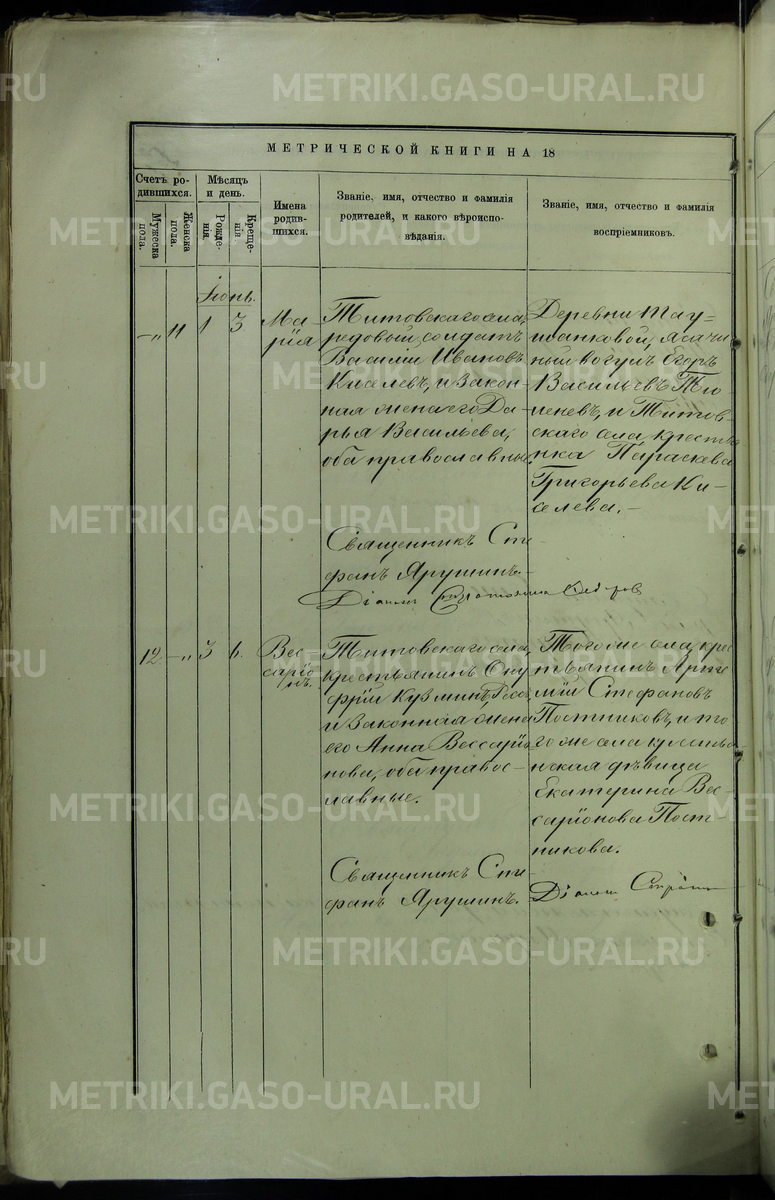 METRIKI.GASO-URAL.RU
МЕТРИЧЕСКОЙ КНИГИ НА 18
Счетъ ро-
дившихся.
Мужеска
пола.
Женска
пола.
Мѣсяцъ
и день.
Рожде-
нія.
Креще-
нія.
Имена
родив-
шихся.
Званіе, имя, отчество и фамилія
родителей, и какого вѣроиспо-
вѣданія.
Званіе, имя, отчество и фамилія
воспріемниковъ.
Іюнь.
–„ 11 1 3
Ма-
рія
Титовскаго села,
редовой солдатъ
Василій Ивановъ
Киселевъ, и закон-
ная жена его Да-
рья Васильева,
оба православные.
Деревни Тау-
шанковой, ясачн
ный вогулъ Егоръ
Васильевъ Тю-
меневъ, и Титов-
скаго села кресть
янка Параскева
Григорьева Ки-
селева.–
Священникъ Сте-
фанъ Ярушинъ.
12. –„ 3 6.
Вис-
саріо
нъ.
Титовскаго села,
крестьянинъ Ону
фрій Кузминъ,
и законная жена
его Анна Виссаріо-
нова, оба правос-
лавные.
Того же села, крес
тьянинъ Арте
мій Стефановъ
Постниковъ, и то-
го же села кресть-
янская дѣвица
Екатерина Вис-
саріонова Пост-
никова.
Священникъ Сте-
фанъ Ярушинъ.